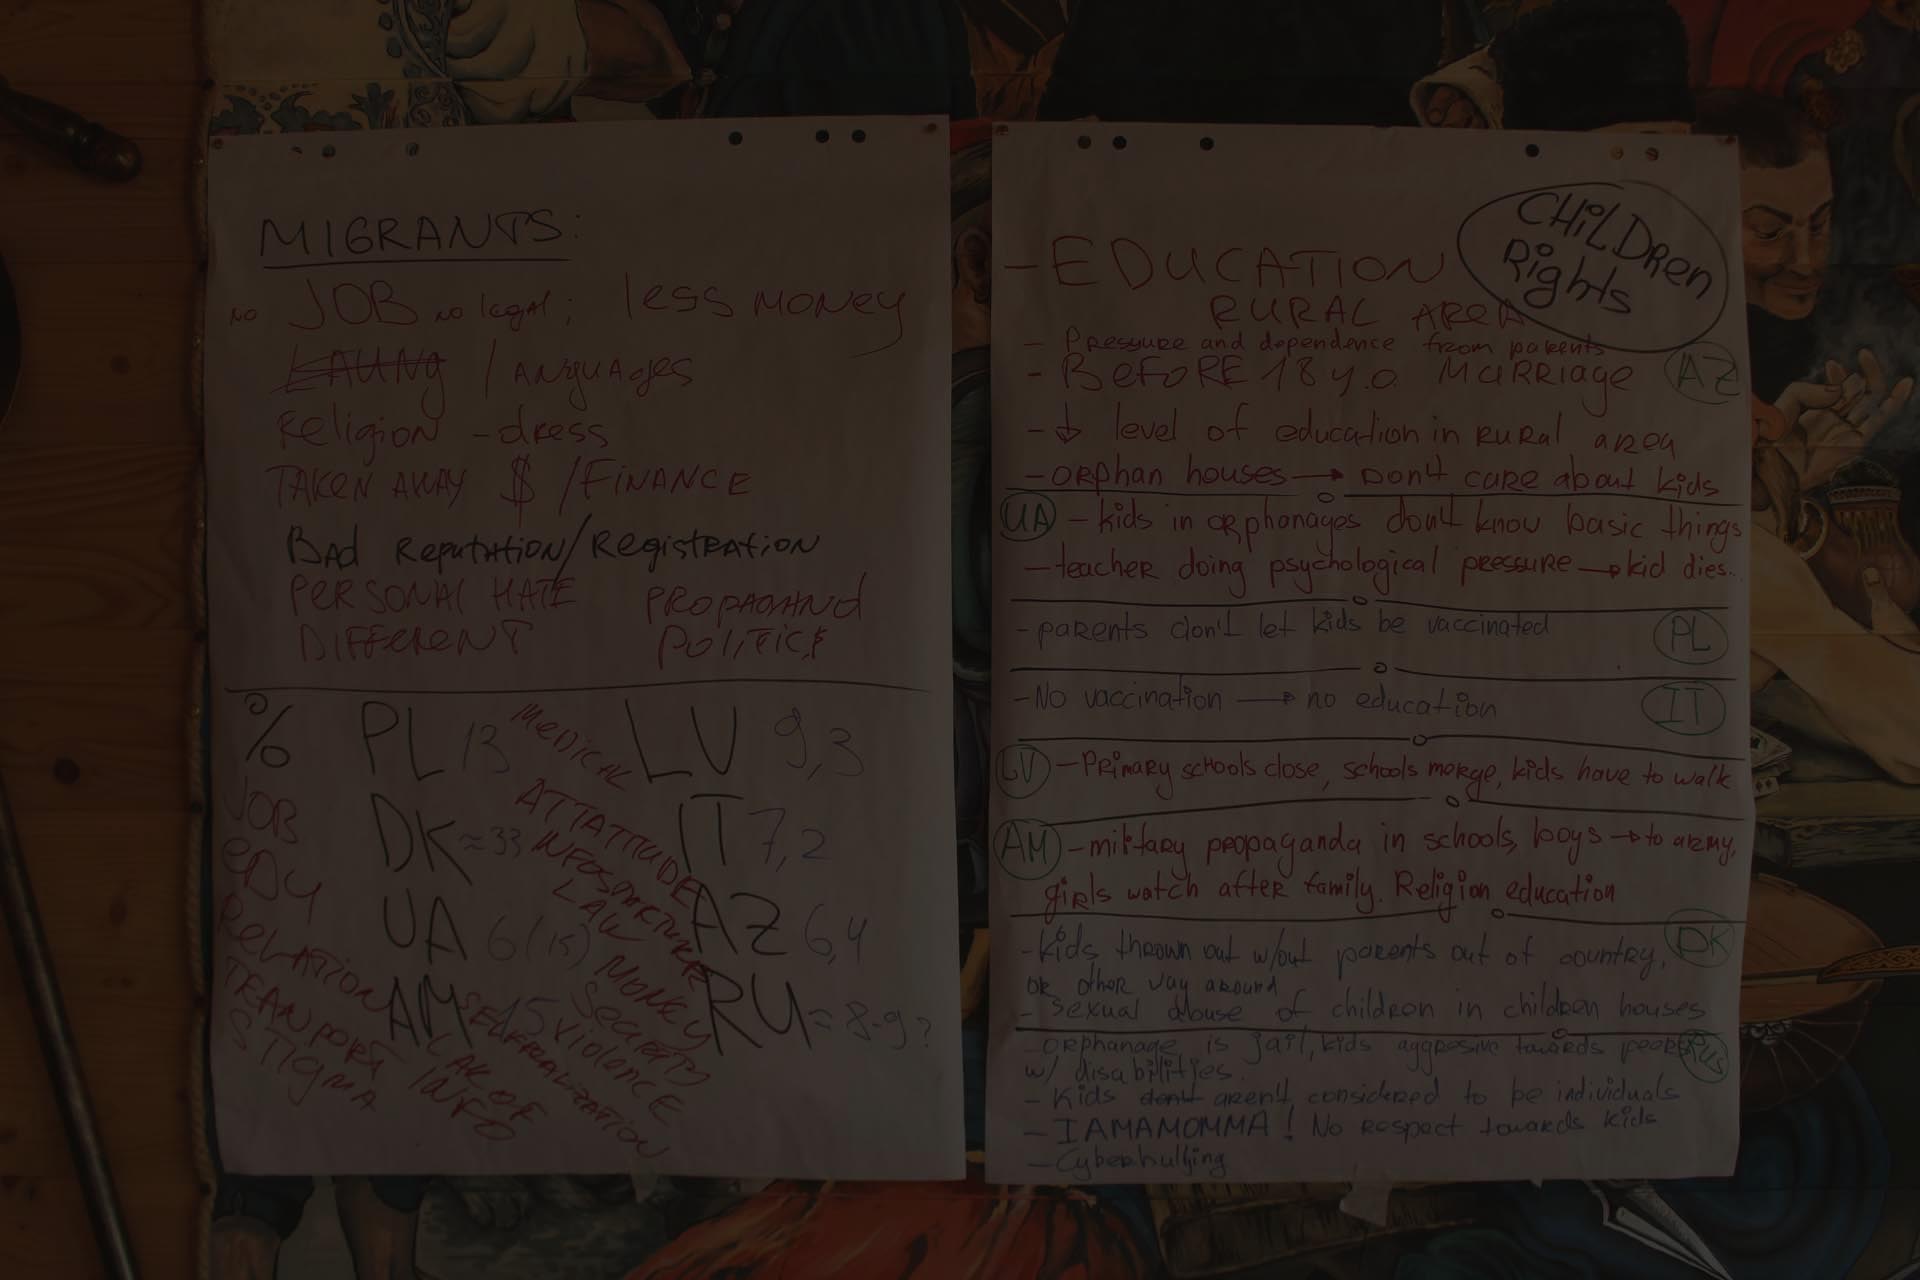 MIGRANTS:
no JOB no legal; less money
LAUNG / languages
Religion - dress
TAKEN AWAY $ / FINANCE
Bad Reputation/Registration
PERSONAL HATE PROPAGANd
DIFFERENT POLITICS
% PL 13 LV 9,3
DK ≈33 IT 7,2
UA 6(15) AZ 6,4
AM 15 RU = 8-9?
JOB
EDU
RELATION
TRANPORT
STIGMA
MEDICAL
ATTATTUDE
LAW
MONEY
VIOLENCE
LAK OF
INFO
CHILDREN
Rights
- EDUCATION
RURAL AREA
- Pressure and dependence from parents
- BEFORE 18 y.o. MARRiage AZ
- ↓ level of education in rural area
- orphan houses → Don't care about kids
UA - kids in orphonages don't know basic things
- teacher doing psychological pressure → kid dies..
- parents don't let kids be vaccinated PL
- No vaccination → no education IT
LV - Primary schools close, schools merge, kids have to walk
AM - military propaganda in schools, boys → to army,
girls watch after family. Religion education
- kids thrown out w/out parents out of country, DK
or other way around
- sexual abuse of children in children houses
- orphanage is jail, kids aggresive towards people RUS
w/ disabilities.
- Kids don't aren't considered to be individuals
- IAMAMOMMA! No respect towards kids
- Cyberbullying